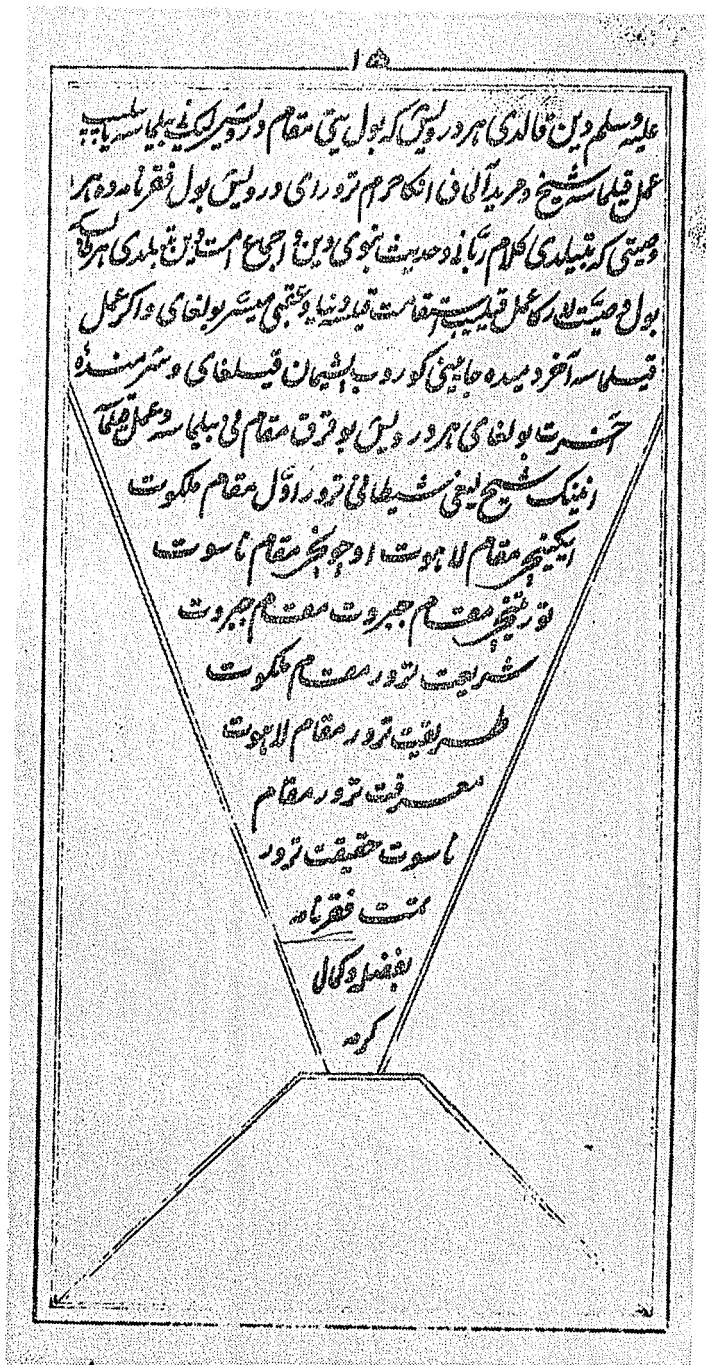 ۱۵
علیه وسلم دین قالدی هر درویش که بول یتی مقام درویشلیک نی بیلماسه یا
عمل قیلماسه شیخ و مرید آلماق انکا حرام ترور ای درویش بول فقرنامه ده هر
وصیتی که بتیلدی کلام ربانی و حدیث نبوی دین و اجماع امت دین بتیلدی هر
بول وصیت لارکا عمل قیلیب استقامت قیلسه دنیا و عقبی میسر بولغای و اکر عمل
قیلماسه آخر دمیده جایینی کوروب پشیمان قیلغای و شرمنده
آخرت بولغای هر درویش بو قرق مقام نی بیلماسه و عمل قیلماسه
انینک شیخ لیغی شیطانی ترور اول مقام ملکوت
ایکینجی مقام لاهوت اوچونجی مقام ناسوت
تورتنجی مقام جبروت مقام جبروت
شریعت ترور مقام ملکوت
طریقت ترور مقام لاهوت
معرفت ترور مقام
ناسوت حقیقت ترور
تمت فقرنامه
بفضل و کمال
کرمه